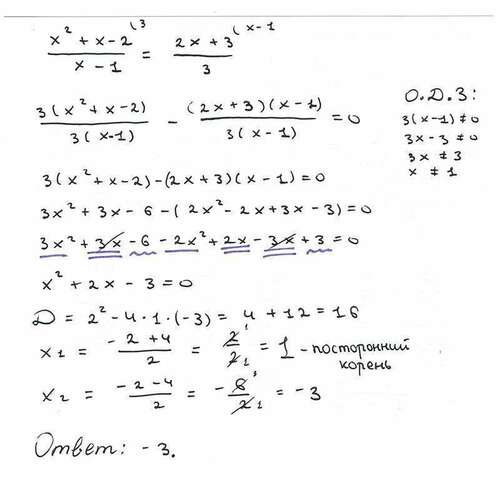 (x² + x - 2)/(x - 1) ⁽³ = (2x + 3)/3 ⁽ˣ⁻¹
3(x² + x - 2)/3(x-1) - (2x + 3)(x - 1)/3(x - 1) = 0
О.Д.З:
3(x-1) ≠ 0
3x - 3 ≠ 0
3x ≠ 3
x ≠ 1
3(x² + x - 2) - (2x + 3)(x - 1) = 0
3x² + 3x - 6 - (2x² - 2x + 3x - 3) = 0
3x² + 3x - 6 - 2x² + 2x - 3x + 3 = 0
x² + 2x - 3 = 0
D = 2² - 4 · 1 · (-3) = 4 + 12 = 16
x₁ = (-2 + 4)/2 = 2¹/2₁ = 1 - посторонний
корень
x₂ = (-2 - 4)/2 = -6³/2₁ = -3
Ответ: -3.